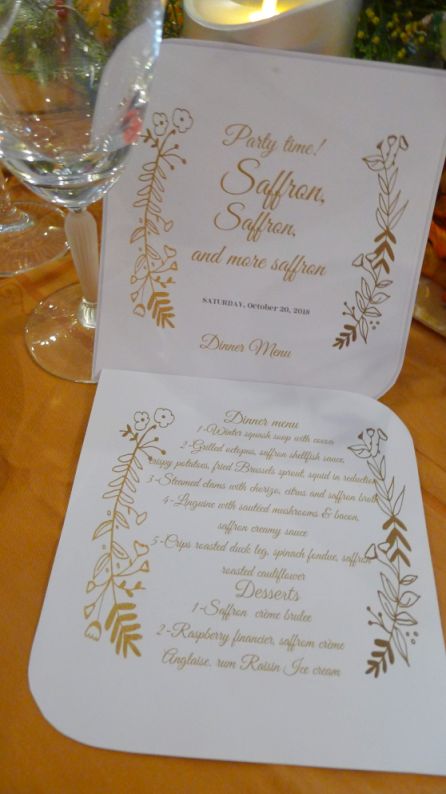 Party time!
Saffron,
Saffron,
and more saffron
SATURDAY, October 20, 2018
Dinner Menu
Dinner menu
1-Winter squash soup with cocoa
2-Grilled octopus, saffron shellfish sauce,
crispy potatoes, fried Brussels sprout, squid in reduction
3-Steamed clams with cherizo, citrus and saffron broth
4-Linguine with sautéed mushrooms & bacon,
saffron creamy sauce
5-Crips roasted duck leg, spinach fondue, saffron
roasted cauliflower
Desserts
1-Saffron crème brulee
2-Raspberry financier, saffrom crème
Anglaise, rum Raisin Ice cream